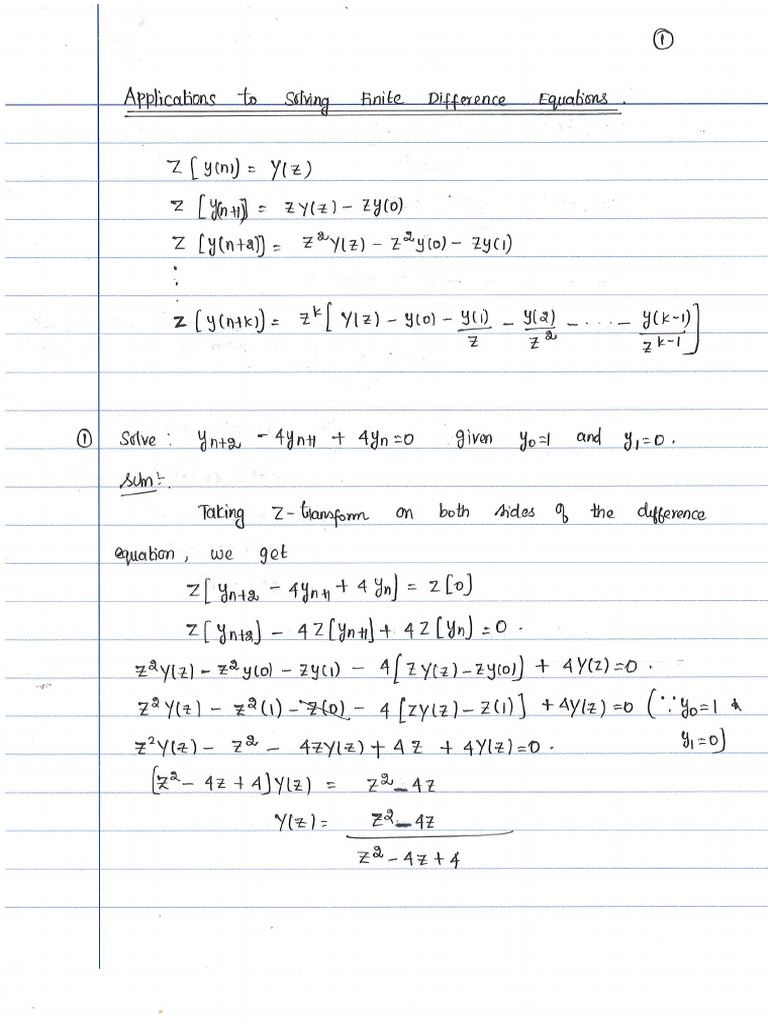 ①
Applications to Solving Finite Difference Equations.
Z[y(n)] = Y(z)
Z[y(n+1)] = zY(z) - zy(0)
Z[y(n+2)] = z²Y(z) - z²y(0) - zy(1)
⋮
Z[y(n+k)] = z^k [Y(z) - y(0) - y(1)/z - y(2)/z² - ... - y(k-1)/z^(k-1)]
① Solve : y_{n+2} - 4y_{n+1} + 4y_n = 0 given y_0=1 and y_1=0.
Soln:-
Taking Z-transform on both sides of the difference
equation, we get
Z[y_{n+2} - 4y_{n+1} + 4y_n] = Z[0]
Z[y_{n+2}] - 4Z[y_{n+1}] + 4Z[y_n] = 0.
z²Y(z) - z²y(0) - zy(1) - 4[zY(z) - zy(0)] + 4Y(z) = 0.
z²Y(z) - z²(1) - z(0) - 4[zY(z) - z(1)] + 4Y(z) = 0 (∵ y_0=1 &
z²Y(z) - z² - 4zY(z) + 4z + 4Y(z) = 0. y_1=0)
[z² - 4z + 4]Y(z) = z² - 4z
Y(z) = z² - 4z
z² - 4z + 4